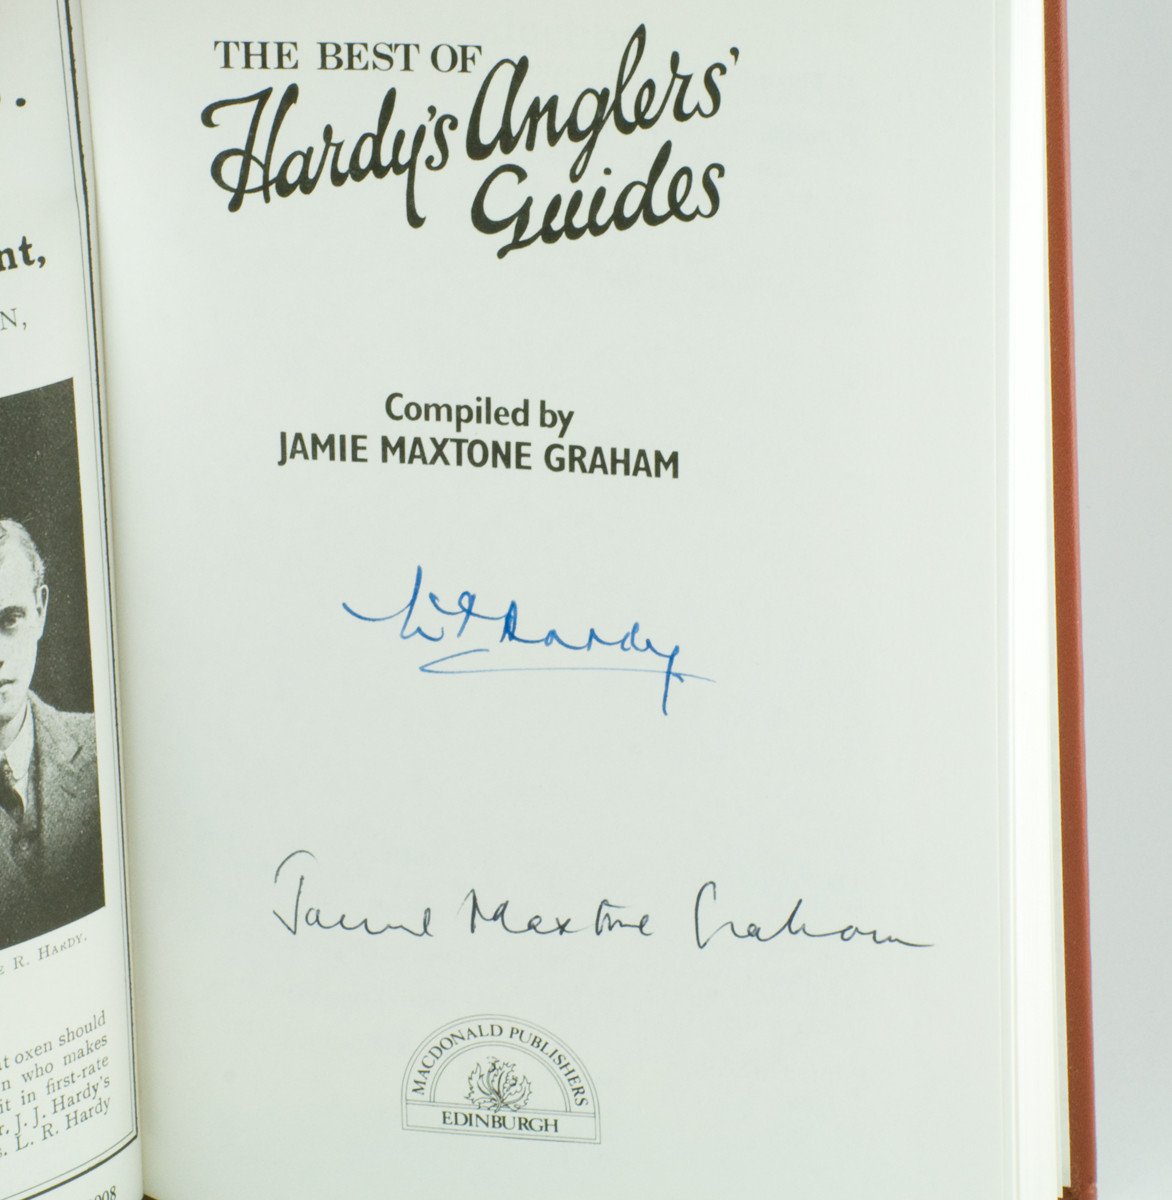 nt,
N,
R. HARDY.
oxen should
who makes
it in first-rate
J. J. Hardy's
L. R. Hardy
THE BEST OF
Hardy's Anglers'
Guides
Compiled by
JAMIE MAXTONE GRAHAM
Hardy
Jamie Maxtone Graham
MACDONALD PUBLISHERS
EDINBURGH